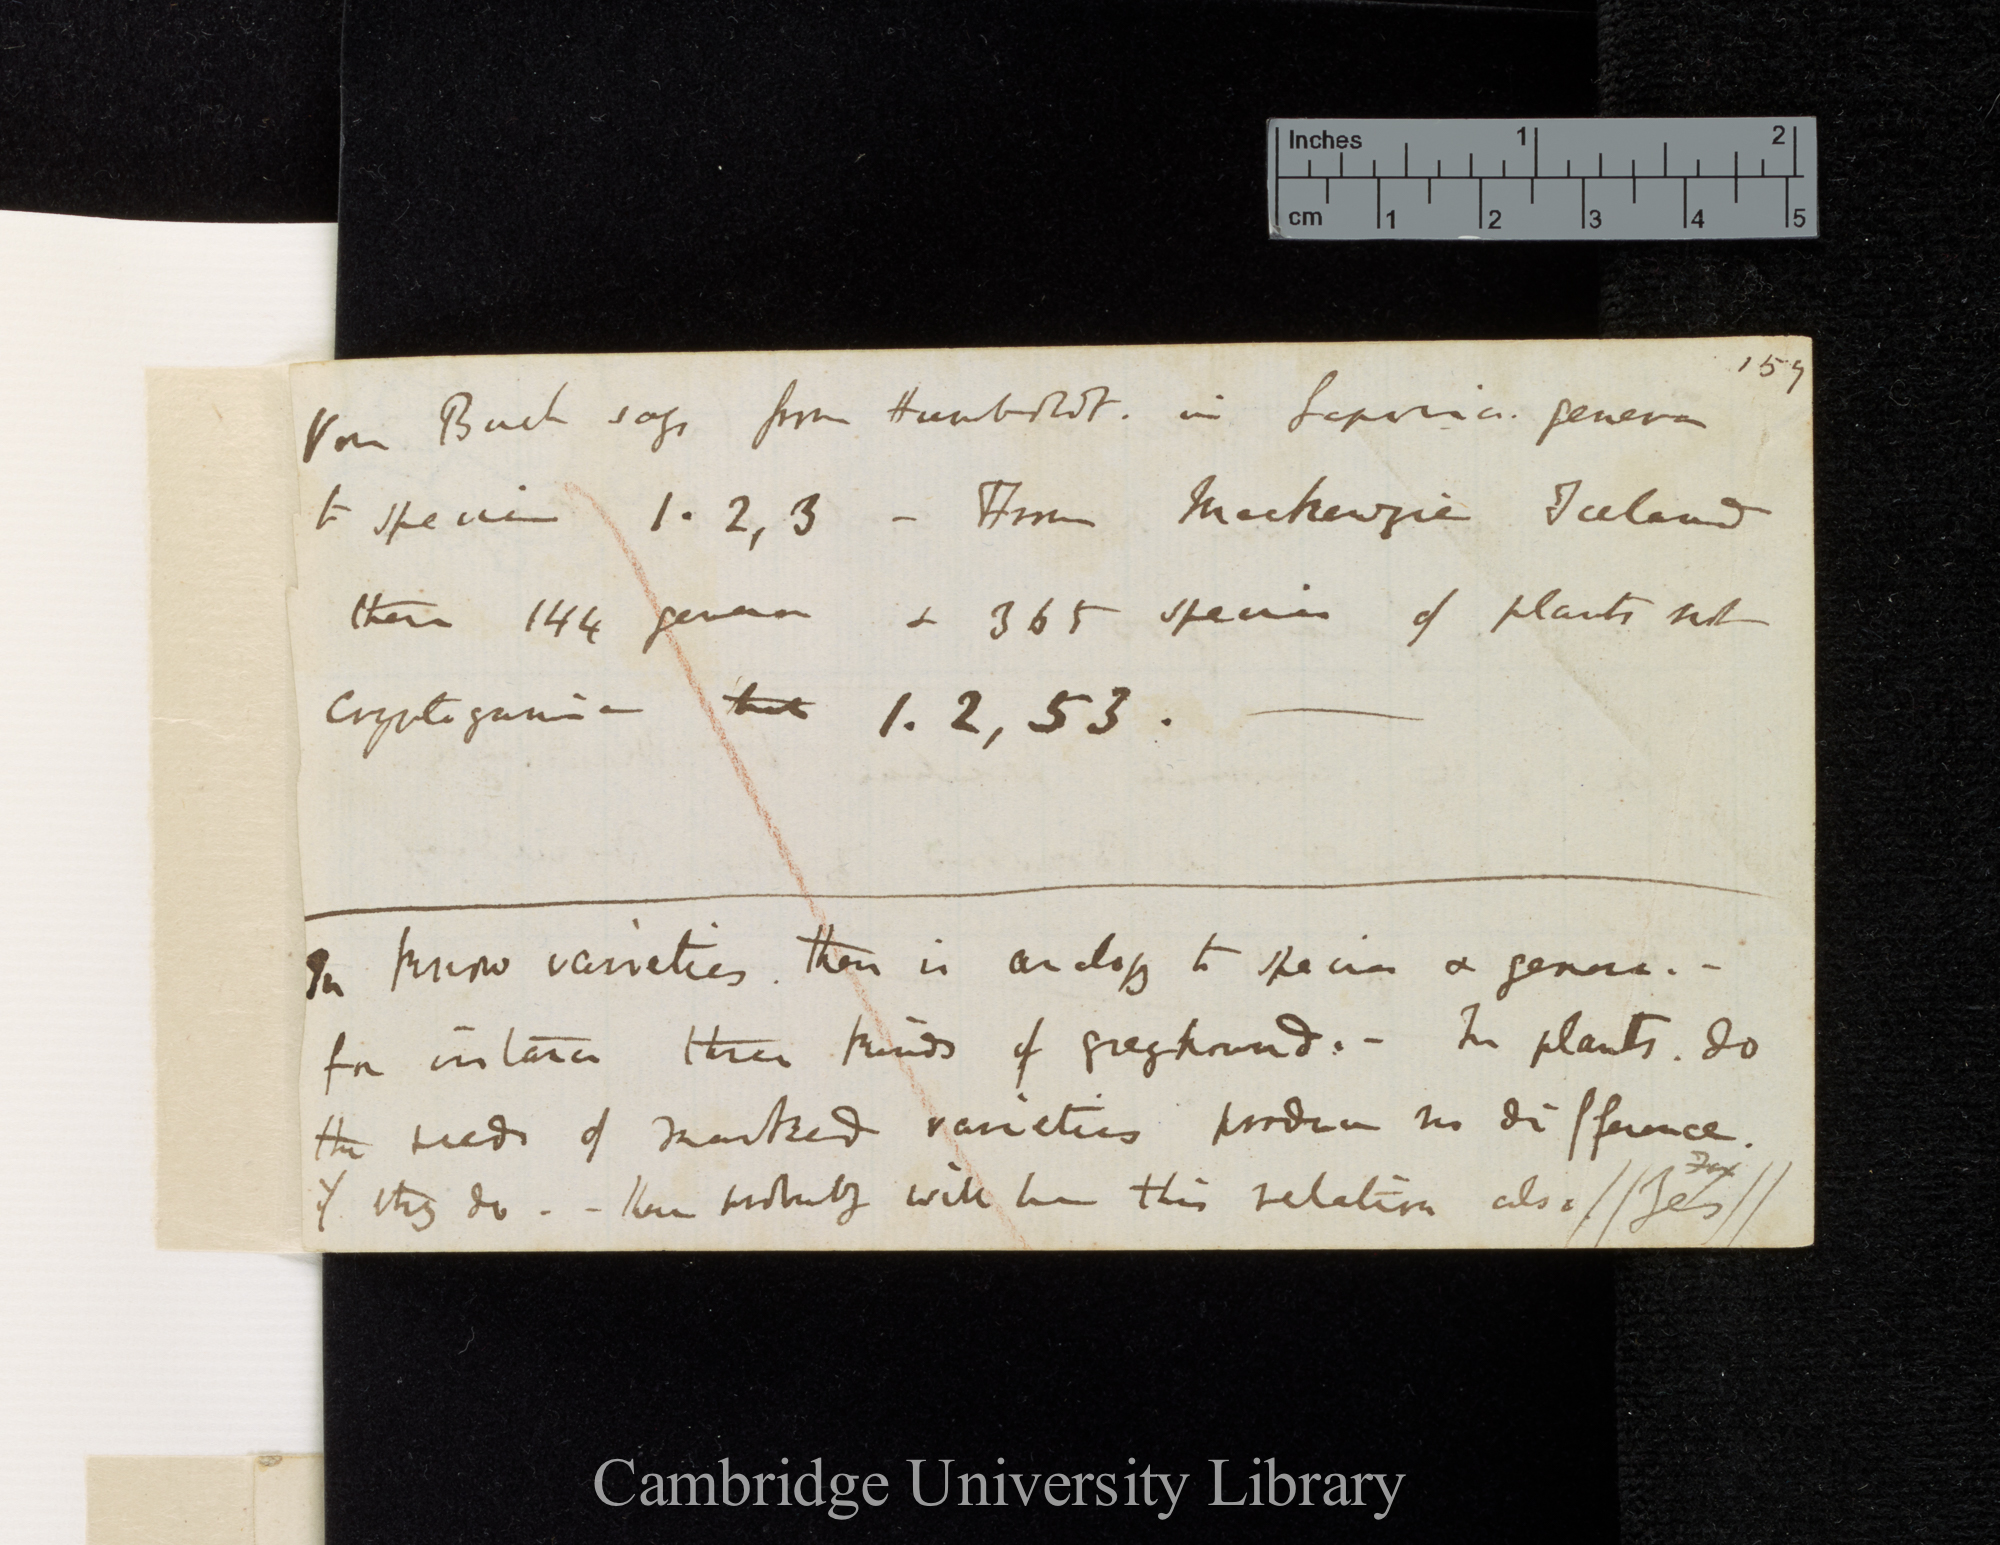 Inches 1 2
cm 1 2 3 4 5
159
Von Buch says from Humboldt. in Laponia. genera
to species 1. 2,3 – From Mackenzie Iceland
there 144 genera & 365 species of plants not
Cryptogamia 1. 2, 53. —
In know varieties. there is analogy to species & genera. –
for instance three kinds of greyhound. – In plants. do
the seeds of marked varieties produce no difference.
if they do. – there probably will be this relation also. //Yes//
Fox
Cambridge University Library